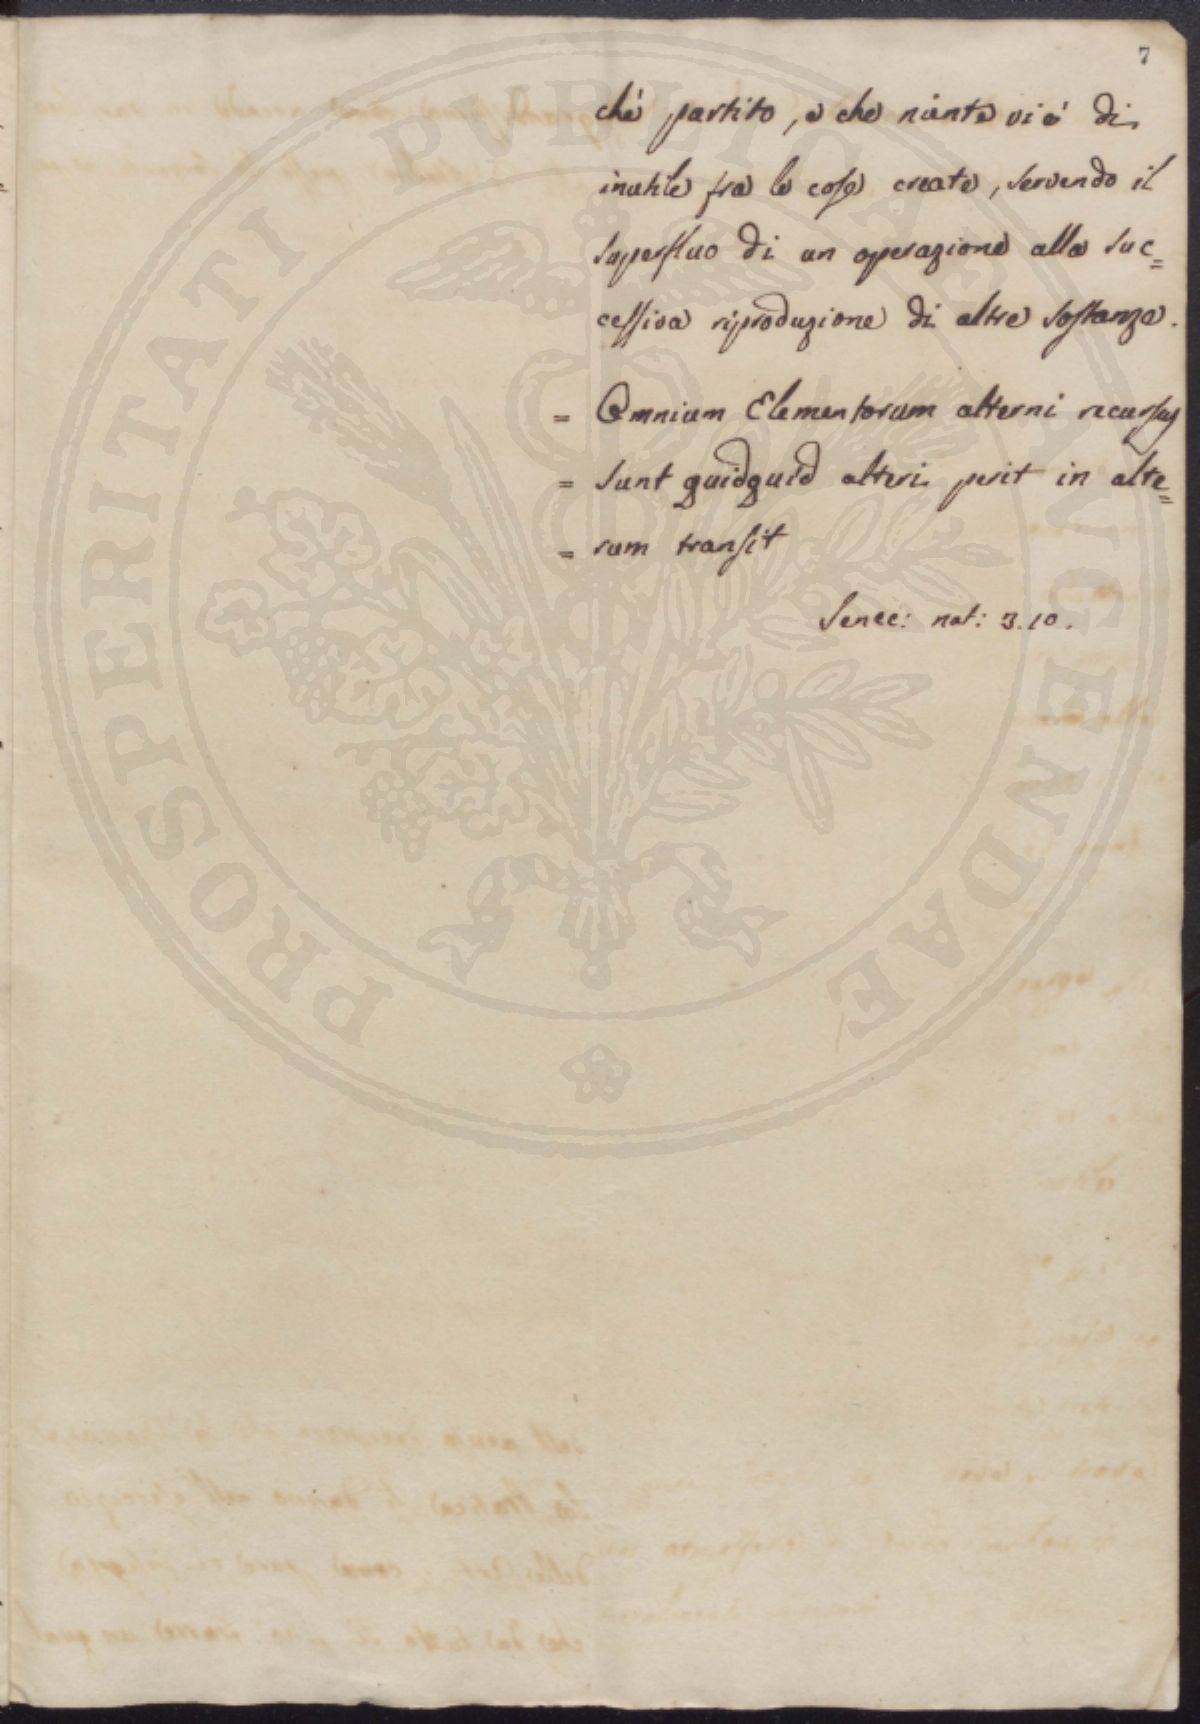 7
chè partito, e che niente vi è di
inutile fra le cose create, servendo il
superfluo di un operazione alla suc=
cessiva riproduzione di altre sostanze.
= Omnium Elementorum alterni recursus
= sunt quidquid alteri perit in alte=
= rum transit
Senec: nat: 3.10.
PROSPERITATI PUBLICAE AUGENDAE